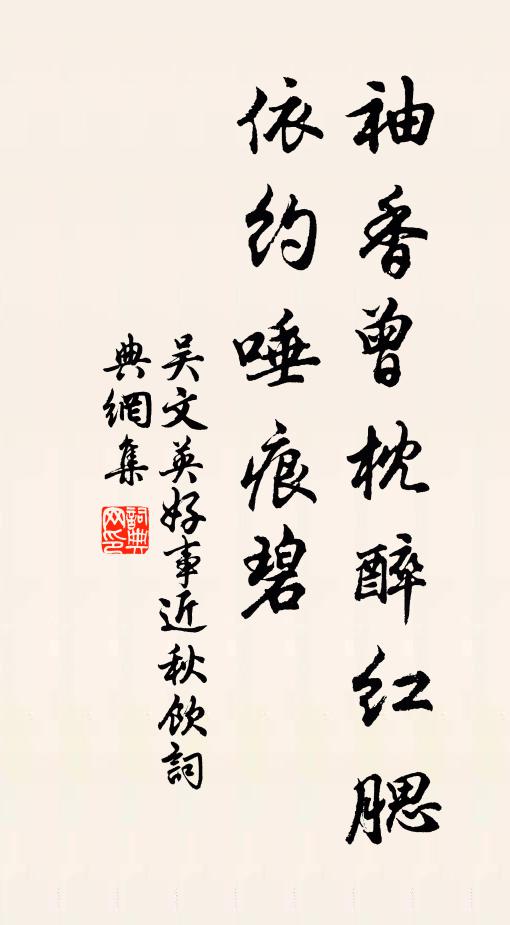 袖香曾枕醉红腮
依约唾痕碧
吴文英好事近秋饮詞
典網集
詞典网印